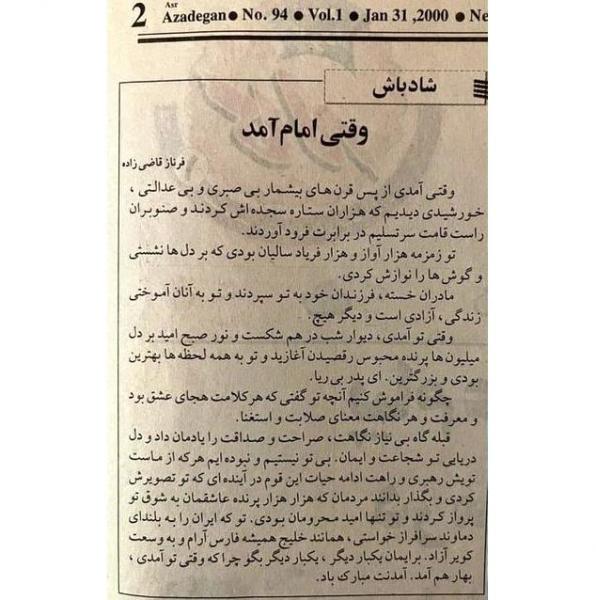 2 Asr Azadegan● No. 94 ● Vol.1 ● Jan 31 ,2000 ● Ne
شادباش
وقتی امام آمد
فرناز قاضی زاده
وقتی آمدی از پس قرن های بیشمار بی صبری و بی عدالتی ،
خورشیدی دیدیم که هزاران ستاره سجده اش کردند و صنوبران
راست قامت سرتسلیم در برابرت فرود آوردند.
تو زمزمه هزار آواز و هزار فریاد سالیان بودی که بر دل ها نشستی
و گوش ها را نوازش کردی.
مادران خسته، فرزندان خود به تو سپردند و تو به آنان آموختی
زندگی، آزادی است و دیگر هیچ.
وقتی تو آمدی، دیوار شب در هم شکست و نور صبح امید بر دل
میلیون ها پرنده محبوس رقصیدن آغازید و تو به همه لحظه ها بهترین
بودی و بزرگترین. ای پدر بی ریا.
چگونه فراموش کنیم آنچه تو گفتی که هر کلامت هجای عشق بود
و معرفت و هر نگاهت معنای صلابت و استغنا.
قبله گاه بی نیاز نگاهت، صراحت و صداقت را یادمان داد و دل
دریایی تو شجاعت و ایمان. بی تو نیستیم و نبوده ایم هرکه از ماست
تویش رهبری و راهت ادامه حیات این قوم در آینده ای که تو تصویرش
کردی و بگذار بدانند مردمان که هزار هزار پرنده عاشقمان به شوق تو
پرواز کردند و تو تنها امید محرومان بودی. تو که ایران را به بلندای
دماوند سرافراز خواستی، همانند خلیج همیشه فارس آرام و به وسعت
کویر آزاد. برایمان یکبار دیگر ، یکبار دیگر بگو چرا که وقتی تو آمدی ،
بهار هم آمد. آمدنت مبارک باد.